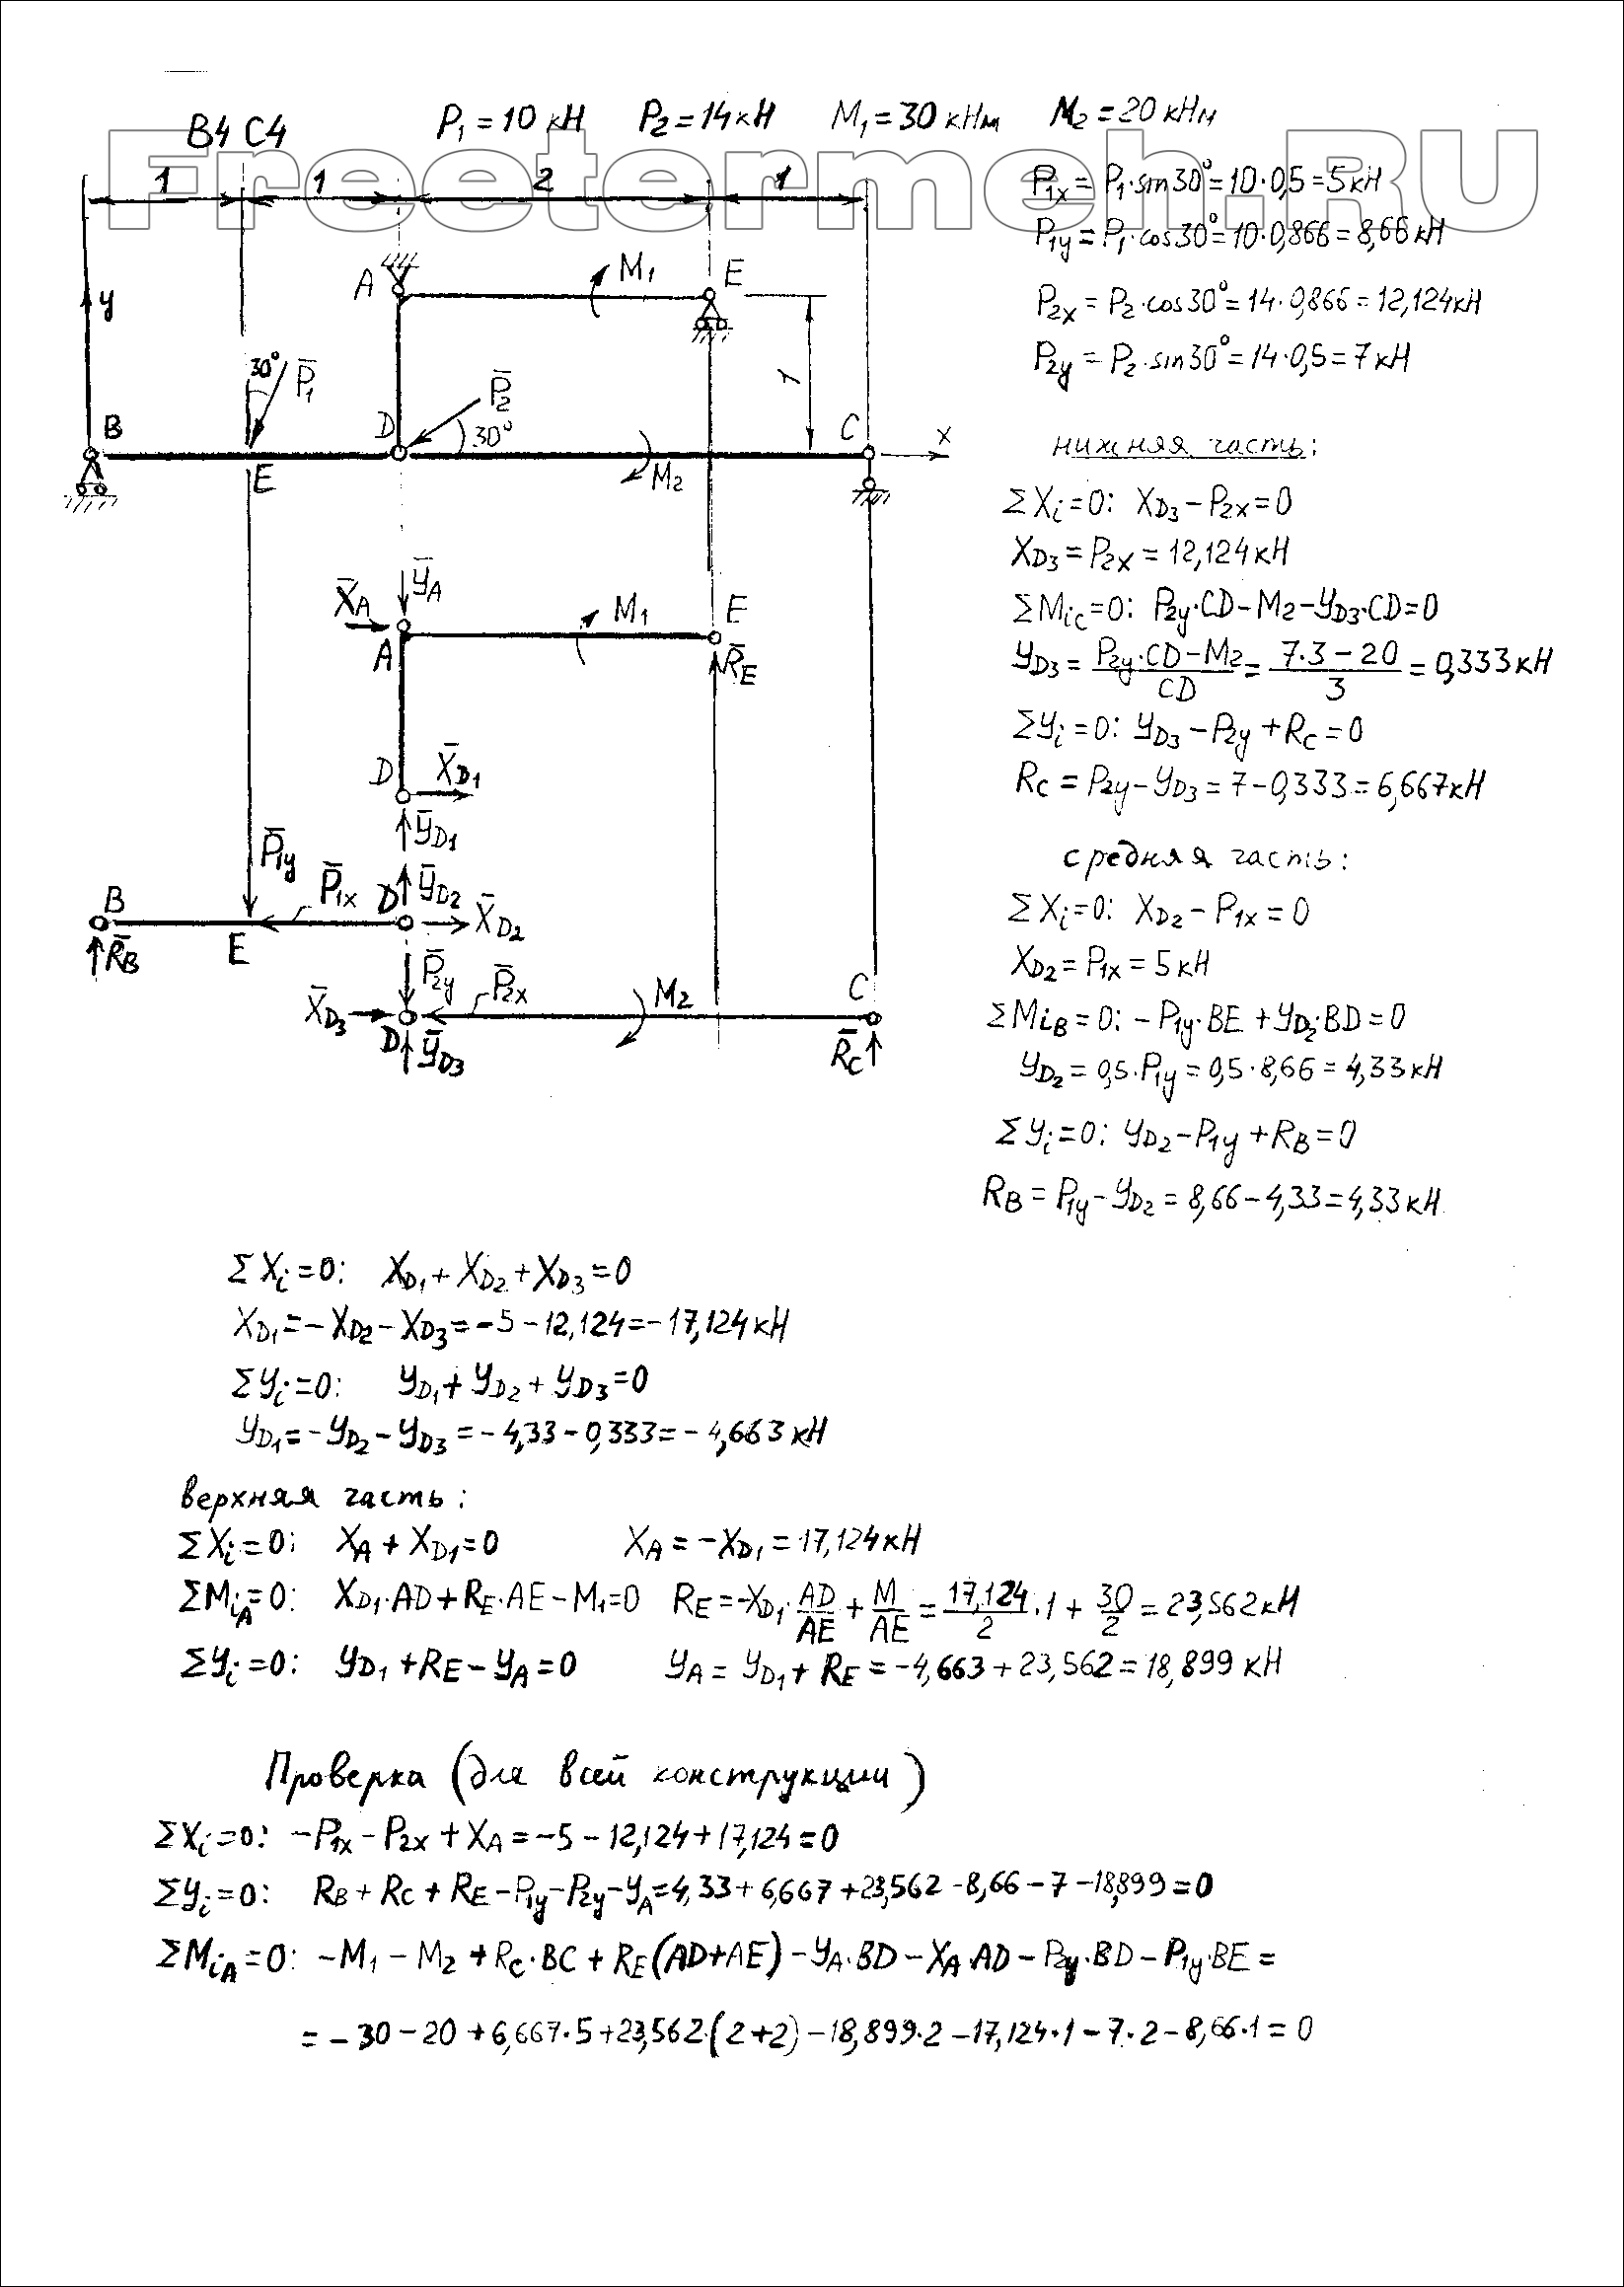 В4 С4
P₁ = 10 кН P₂ = 14 кН M₁ = 30 кНм M₂ = 20 кНм
Freetermeh.RU
1 1 2 1
P₁ₓ = P₁·sin30° = 10·0,5 = 5 кН
P₁y = P₁·cos30° = 10·0,866 = 8,66 кН
P₂ₓ = P₂·cos30° = 14·0,866 = 12,124 кН
P₂y = P₂·sin30° = 14·0,5 = 7 кН
A M₁ E
y
1
30° P̄₁
P̄₂
B D 30° C x
E M₂
нижняя часть:
ΣXi = 0: XD₃ – P₂x = 0
XD₃ = P₂x = 12,124 кН
ΣMiC = 0: P₂y·CD – M₂ – YD₃·CD = 0
YD₃ = (P₂y·CD – M₂)/CD = (7·3 – 20)/3 = 0,333 кН
ΣYi = 0: YD₃ – P₂y + RC = 0
RC = P₂y – YD₃ = 7 – 0,333 = 6,667 кН
ȲA
X̄A M₁ E
A R̄E
D X̄D₁
ȲD₁
P̄₁y
B P̄₁x D ȲD₂
X̄D₂
R̄B E
P̄₂y
X̄D₃ P̄₂x M₂ C
D ȲD₃ R̄C
средняя часть:
ΣXi = 0: XD₂ – P₁x = 0
XD₂ = P₁x = 5 кН
ΣMiB = 0: – P₁y·BE + YD₂·BD = 0
YD₂ = 0,5·P₁y = 0,5·8,66 = 4,33 кН
ΣYi = 0: YD₂ – P₁y + RB = 0
RB = P₁y – YD₂ = 8,66 – 4,33 = 4,33 кН
ΣXi = 0: XD₁ + XD₂ + XD₃ = 0
XD₁ = – XD₂ – XD₃ = – 5 – 12,124 = – 17,124 кН
ΣYi = 0: YD₁ + YD₂ + YD₃ = 0
YD₁ = – YD₂ – YD₃ = – 4,33 – 0,333 = – 4,663 кН
верхняя часть:
ΣXi = 0: XA + XD₁ = 0 XA = – XD₁ = 17,124 кН
ΣMiA = 0: XD₁·AD + RE·AE – M₁ = 0 RE = –XD₁·AD/AE + M/AE = 17,124/2·1 + 30/2 = 23,562 кН
ΣYi = 0: YD₁ + RE – YA = 0 YA = YD₁ + RE = – 4,663 + 23,562 = 18,899 кН
Проверка (для всей конструкции)
ΣXi = 0: – P₁x – P₂x + XA = – 5 – 12,124 + 17,124 = 0
ΣYi = 0: RB + RC + RE – P₁y – P₂y – YA = 4,33 + 6,667 + 23,562 – 8,66 – 7 – 18,899 = 0
ΣMiA = 0: – M₁ – M₂ + RC·BC + RE(AD + AE) – YA·BD – XA·AD – P₂y·BD – P₁y·BE =
= – 30 – 20 + 6,667·5 + 23,562·(2 + 2) – 18,899·2 – 17,124·1 – 7·2 – 8,66·1 = 0